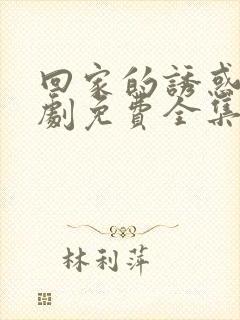 回家的誘惑
劇免費全集
林利萍